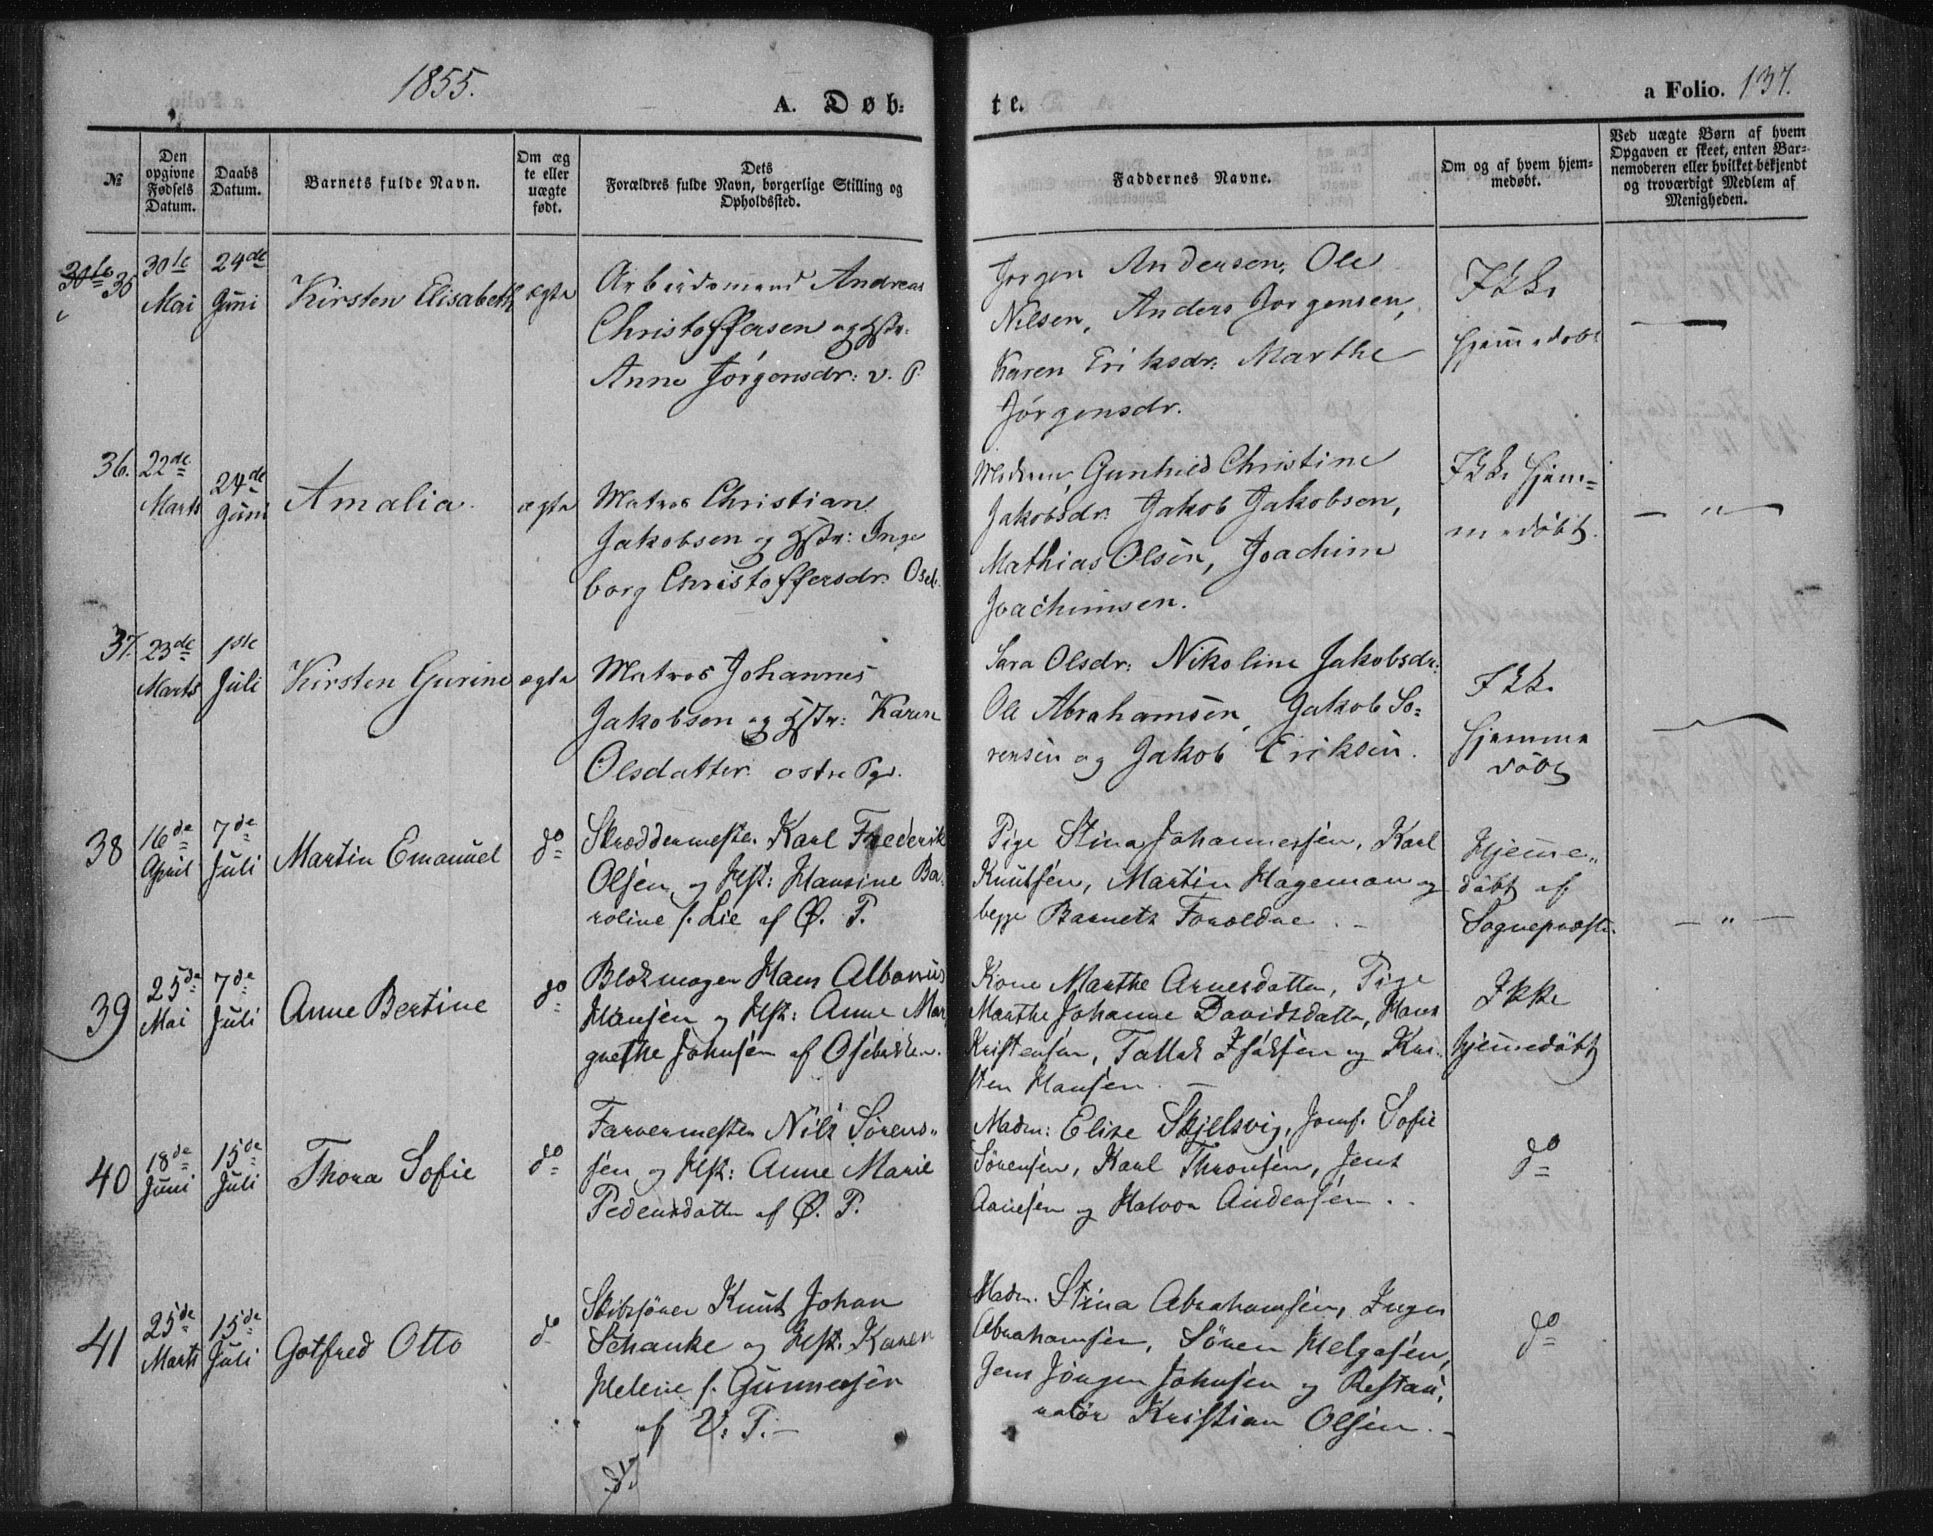 1855.
A. Døb-
te.
a Folio. 137.
№
Den opgivne Fødsels Datum.
Daabs Datum.
Barnets fulde Navn.
Om ægte eller uægte født.
Dets Forældres fulde Navn, borgerlige Stilling og Opholdssted.
Faddernes Navne.
Om og af hvem hjemmedøbt.
Ved uægte Børn af hvem Opgaven er skeet, enten Barnemoderen eller hvilket bekjendt og troværdigt Medlem af Menigheden.
35
30te Mai
24de Juni
Kirsten Elisabeth
ægte
Arbeidsmand Andreas
Christoffersen og Hstr:
Anne Jörgensdr: v. P.
Jorgen Andersen, Ole
Nilsen, Anders Jorgensen,
Karen Eriksdr: Marthe
Jörgensdr.
Ikke
hjemmedobt
36.
22de Marts
24de Juni
Amalia.
ægte
Matros Christian
Jakobsen og Hstr: Inge
borg Christoffersdr. Oseb.
Moderen, Gunhild Christine
Jakobsdr. Jakob Jakobsen,
Mathias Olsen, Joachim
Joachimsen.
Ikke hjem=
medöbt.
— " —
37.
23de Marts
1ste Juli
Kirsten Gurine
ægte
Matros Johannes
Jakobsen og Hstr: Karen
Olsdatter ostre Pgr.
Sara Olsdr: Nikoline Jakobsdr:
Ole Abrahamsen, Jakob So=
rensen og Jakob Eriksen.
Ikke
hjemme
döbt
38
16de April
7de Juli
Martin Emanuel
do
Skræddermester Karl Frederik
Olsen og Hst: Hansine Ba-
roline f. Lie af Ø. P.
Pige Stina Johannessen, Karl
Knutsen, Martin Hageman og
begge Barnets Foræeldre. —
Hjemme„
döbt af
Sognepræsten.
— " —
39
25de Mai
7de Juli
Anne Bertine
do
Blokmager Hans Albanus
Hansen og Hst: Anne Mar
grethe Johnsen af Osebakken.
Kone Marthe Arnesdatter, Pige
Marthe Johanne Davidsdatter, Hans
Kristensen, Tallak Isaksen og Kri-
sten Hansen. —
Ikke
hjemmedöbt
40
18de Juni
15de Juli
Thora Sofie
do
Farvermester Nils Sörens„
sen og Hst: Anne Marie
Pedersdatter af Ø. P.
Madm: Elise Skjelsvig, Jomf. Sofie
Sörensen, Karl Thronsen, Jens
Aanesen og Halvor Andersen. -
do
41
25de Marts
15de Juli
Gotfred Otto
do
Skibsförer Knut Johan
Schanke og Hst. Karen
Helene f. Gunnersen
af V. P. —
Madm. Stina Abrahamsen, Inger
Abrahamsen, Sören Helgesen,
Jens Jörgen Johnsen og Restau-
ratör Kristian Olsen. —
do